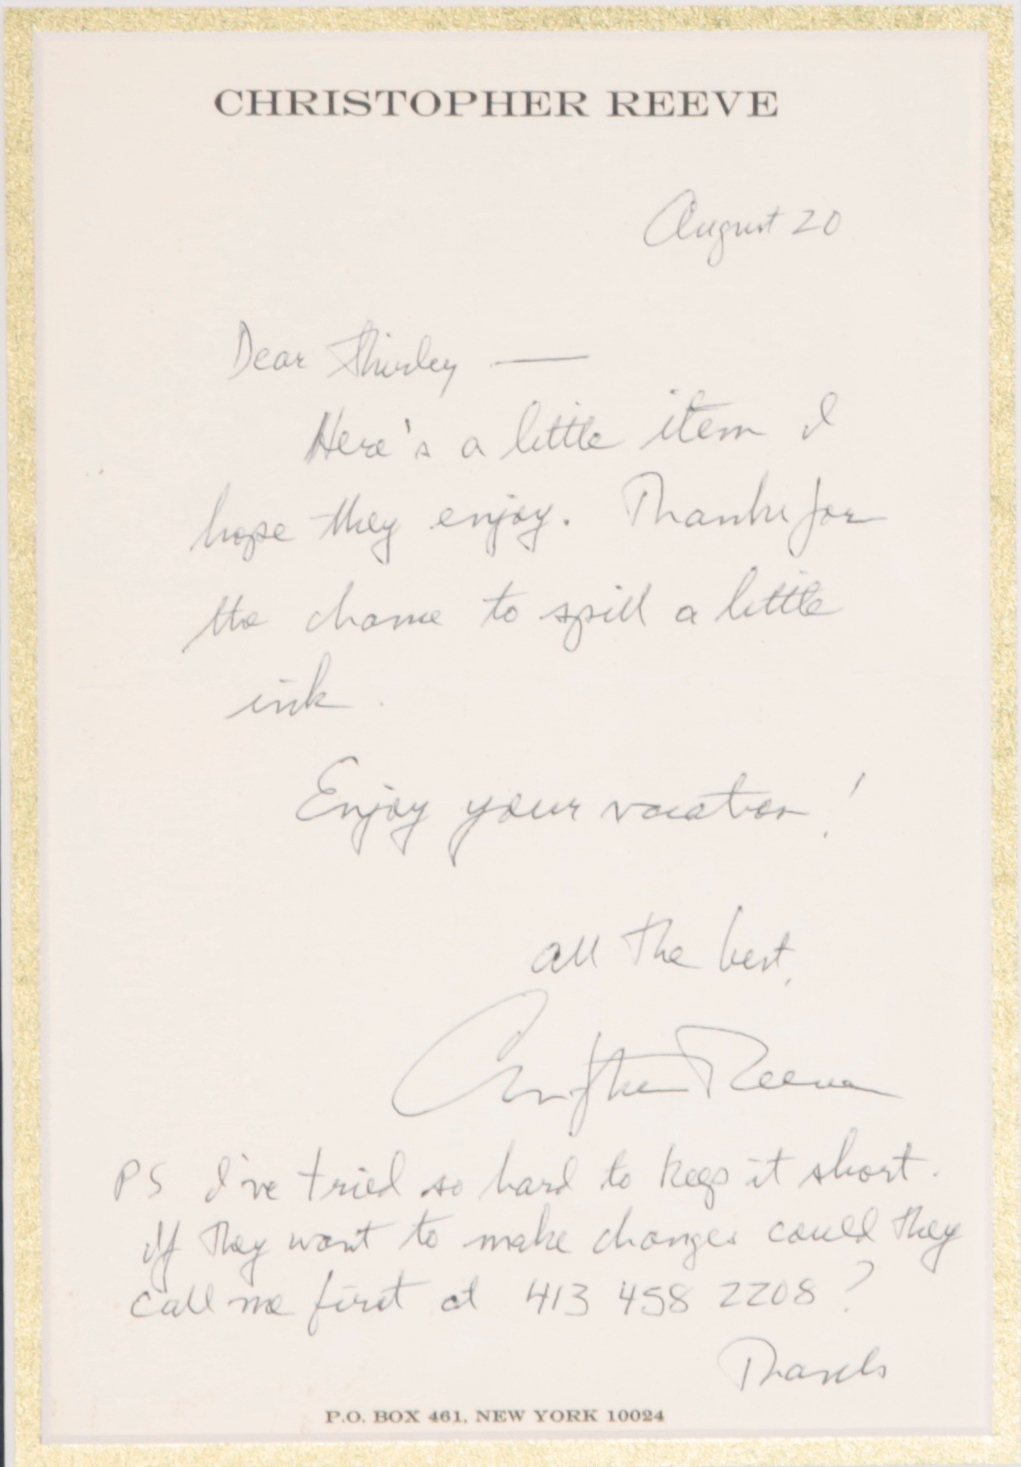 CHRISTOPHER REEVE
August 20
Dear Shirley —
Here's a little item I
hope they enjoy. Thanks for
the chance to spill a little
ink.
Enjoy your vacation!
all the best,
Christopher Reeve
PS I've tried so hard to keep it short.
If they want to make changes could they
call me first at 413 458 2208?
Thanks
P.O. BOX 461, NEW YORK 10024